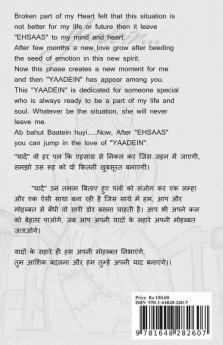 Broken part of my Heart felt that this situation is
not better for my life or future then it leave
"EHSAAS" to my mind and heart.
After few months a new love grow after beeding
the seed of emotion in this new spirit.
Now this phase creates a new moment for me
and then "YAADEIN" has appear among you.
This "YAADEIN" is dedicated for someone special
who is always ready to be a part of my life and
soul. Whatever be the situation, she will never
leave me.
Ab bahut Baatein huyi....Now, After "EHSAAS"
you can jump in the love of "YAADEIN".
"यादें" वो हर पल कि एहसास से निकल कर जिस जहन में जाएगी,
समझो उस रूह को वो कितनी खुबसूरत बनाएगी।
"यादें" उन तमाम बिताए हुए पलों को संजोग कर एक लम्हा
और एक ऐसी साया बना रही है जिस सायें में हम, आप और
मोहब्बत से बँधी वो सारी डोर बसना चाहती है। आप भी अपने कल
को बेहतर पाओगे, जब आप अपनी यादों के सहारे अपनी मोहब्बत
जताओगे।
यादों के सहारे ही हम अपनी मोहब्बत निभाएंगे,
तुम आशिक बदलना और हम तुम्हे अपनी याद बनाएंगे।।
Price: Rs 150.00
ISBN
978-1-64828-260-7
9 781648 282607